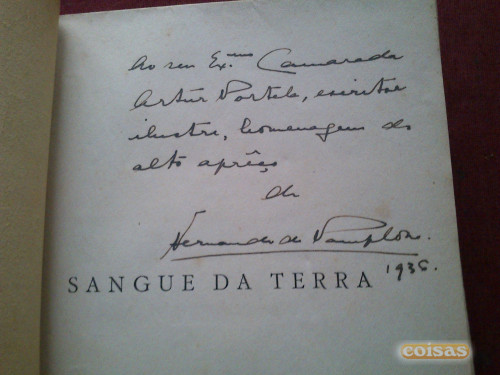 Ao seu Ex.mo Camarada
Artur Portela, escritor
ilustre, homenagem do
alto aprêço
de
Fernando de Pamplona.
1936.
SANGUE DA TERRA
coisas